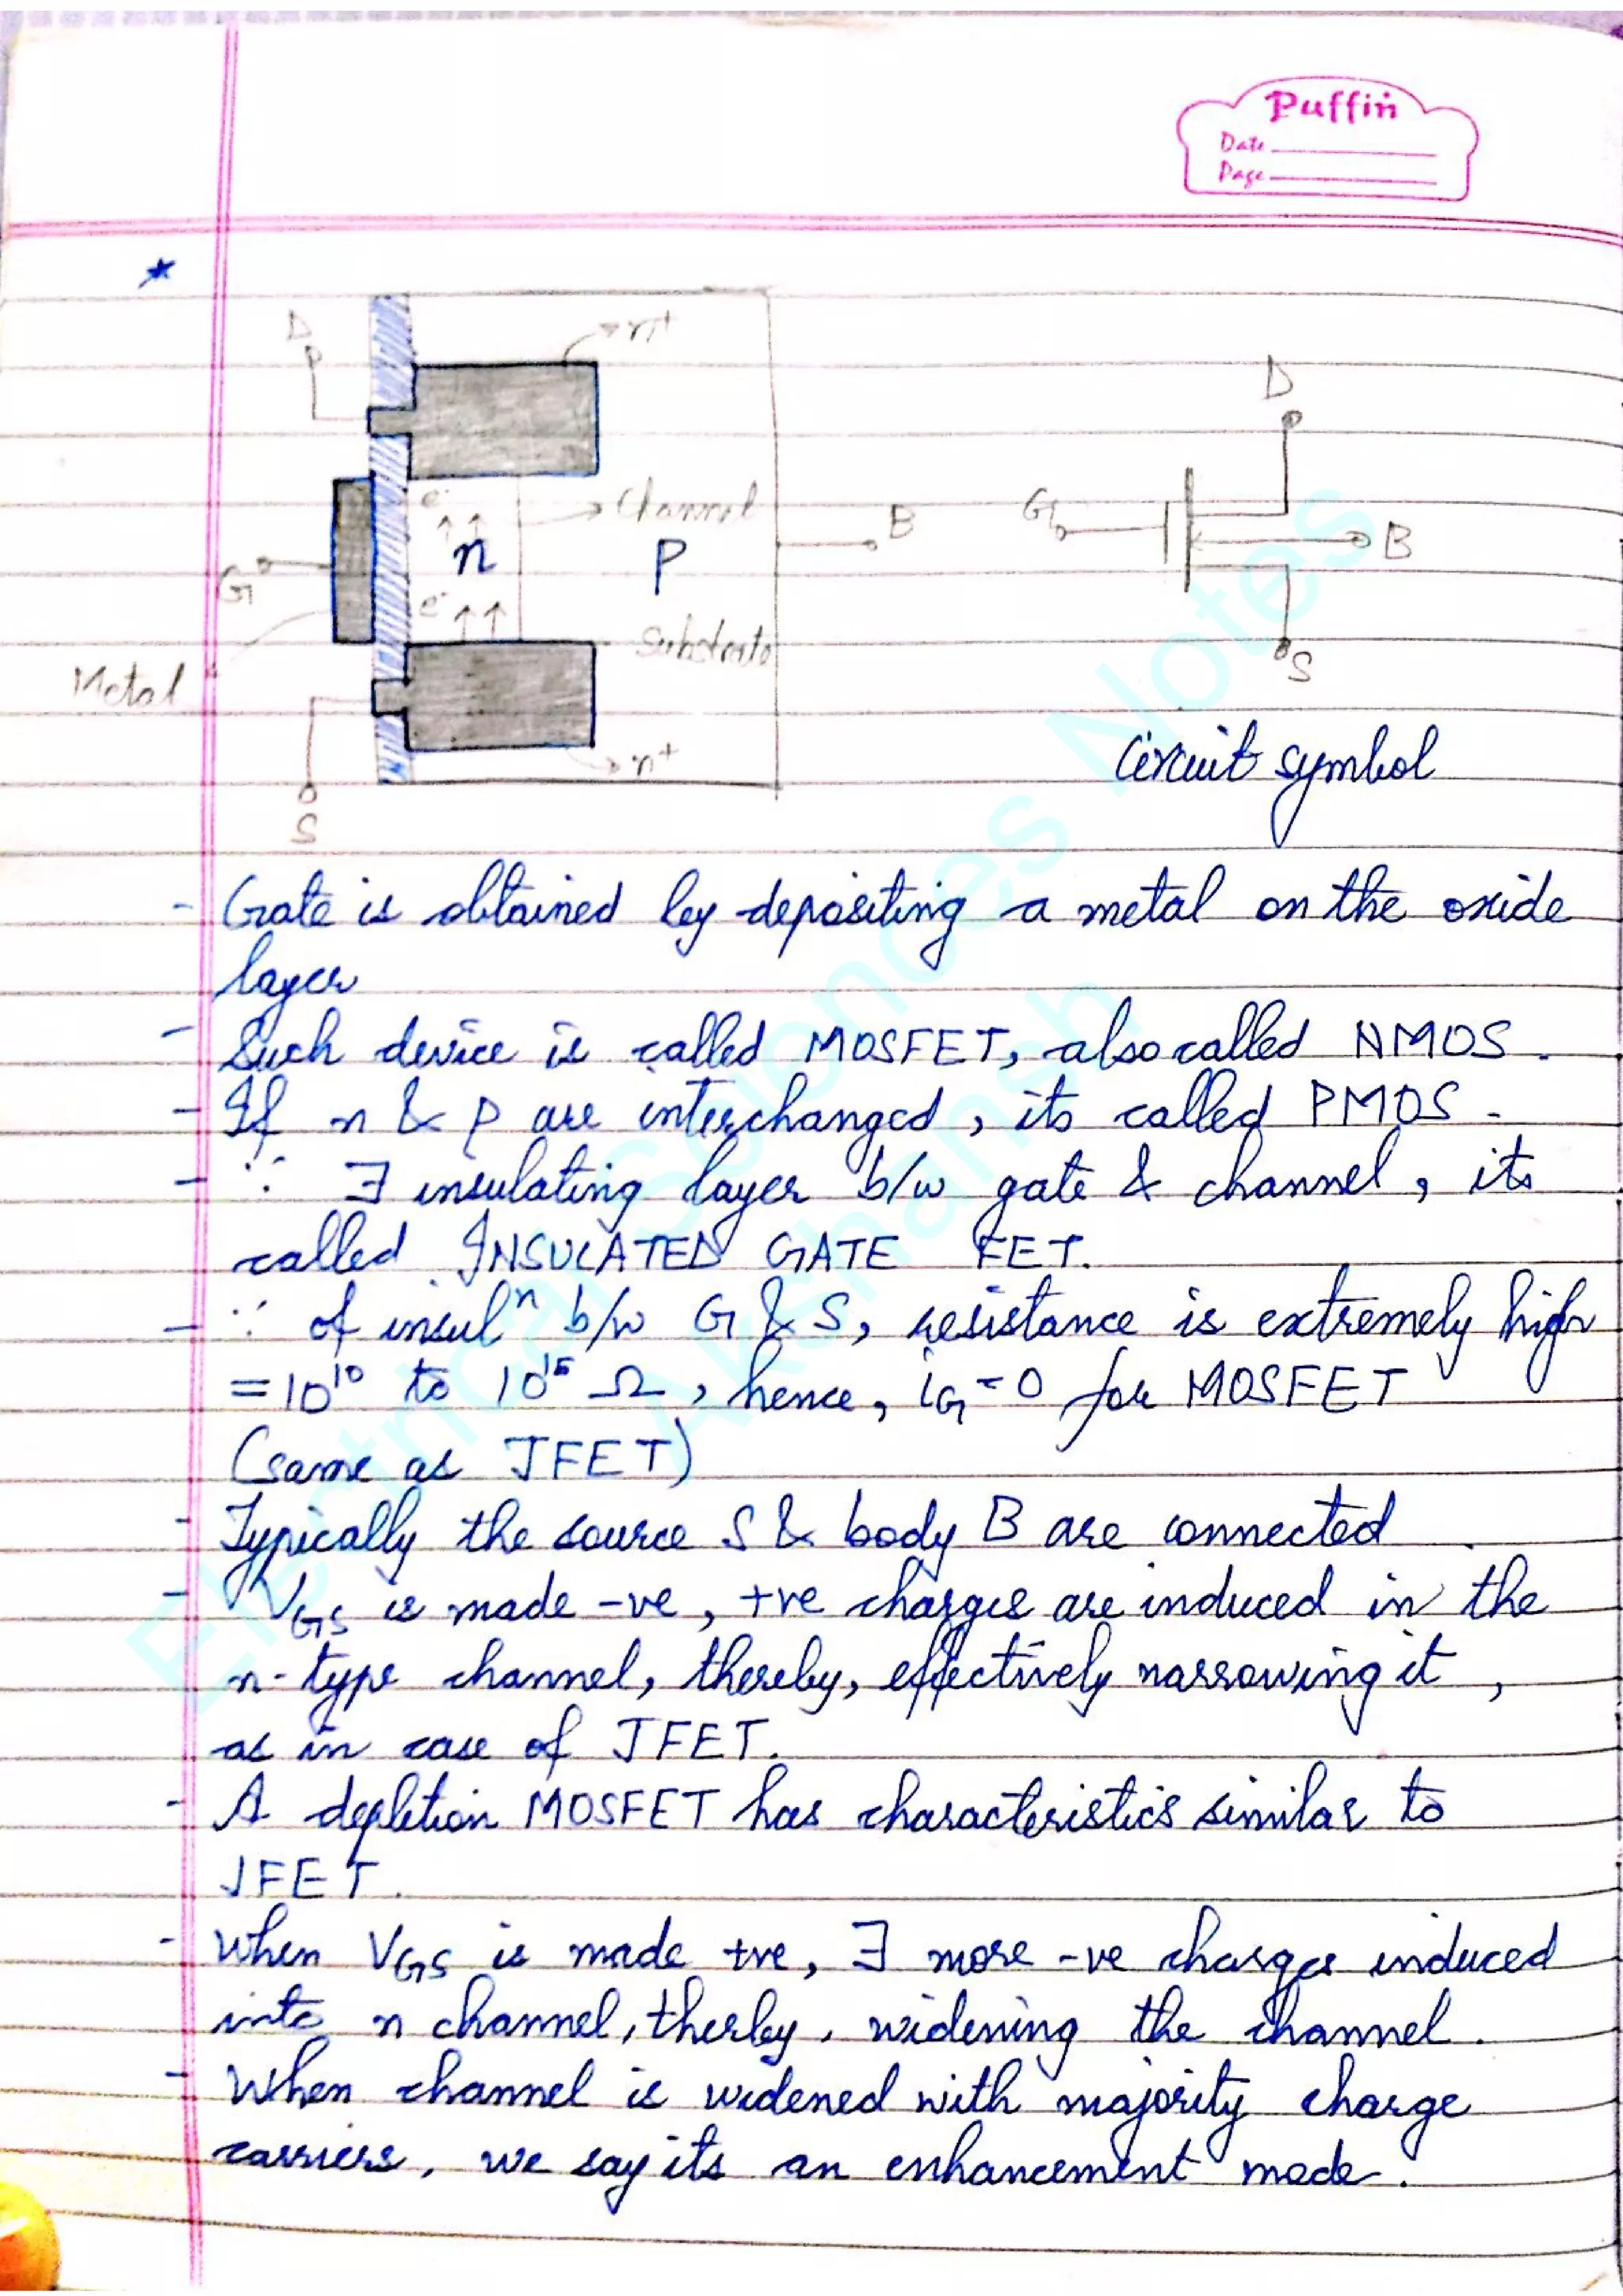 Puffin
Date
Page
D
n+
e-
Channel
n
P
B
G
e-
Substrate
Metal
n+
S
D
G
B
S
Circuit symbol
- Gate is obtained by depositing a metal on the oxide
layer
- Such device is called MOSFET, also called NMOS.
- If n & p are interchanged, its called PMOS.
- ∵ ∃ insulating layer b/w gate & channel, its
called INSULATED GATE FET.
- ∵ of insulⁿ b/w G & S, resistance is extremely high
= 10¹⁰ to 10¹⁵ Ω, hence, iG = 0 for MOSFET
(same as JFET)
- Typically the source S & body B are connected.
- VGS is made -ve, +ve charges are induced in the
n-type channel, thereby, effectively narrowing it,
as in case of JFET.
- A depletion MOSFET has characteristics similar to
JFET.
- When VGS is made +ve, ∃ more -ve charges induced
into n channel, therby, widening the channel.
- When channel is widened with majority charge
carriers, we say its an enhancement mode.
Electrical Sciences Notes
Akshansh